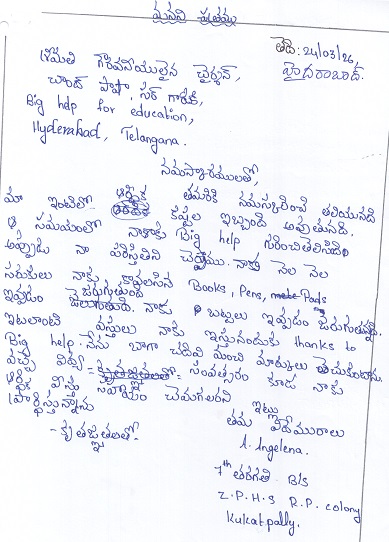 మనవి పత్రము
తేది: 24/03/26,
హైదరాబాద్.
శ్రీమతి గౌరవనీయులైన చైర్మన్,
చాంద్ పాషా, సర్ గారికి,
Big help for education,
Hyderabad, Telangana.
నమస్కారములతో,
తమరికి నమస్కరించి తెలియునది
మా ఇంటిలో ఆర్థిక కష్టాల ఇబ్బంది అవుతునది.
ఆ సమయంలో నాకు Big help గురించి తెలిసింది
అప్పుడు నా పరిస్థితిని చెప్పాము. నాకు నెల నెల
సరుకులు నాకు కావలసిన Books, Pens, Pads
ఇవ్వడం జరుగుతుంది. నాకు బట్టలు ఇవ్వడం జరుగుతున్నది.
ఇటలాంటి వస్తులు నాకు ఇస్తునందుకు thanks to
Big help. నేను బాగా చదివి మంచి మార్కులు తెచుకుంటాను.
వచ్చే విద్యా సంవత్సరం కూడ నాకు
ఆర్థిక సహాయం చెయగలరని
ప్రార్థిస్తున్నాను
- కృతజ్ఞతలతో.
ఇట్లు
తమ విధేయురాలు
A. Angelena.
7th తరగతి B/S
Z.P.H.S R.P. colony
Kukatpally.